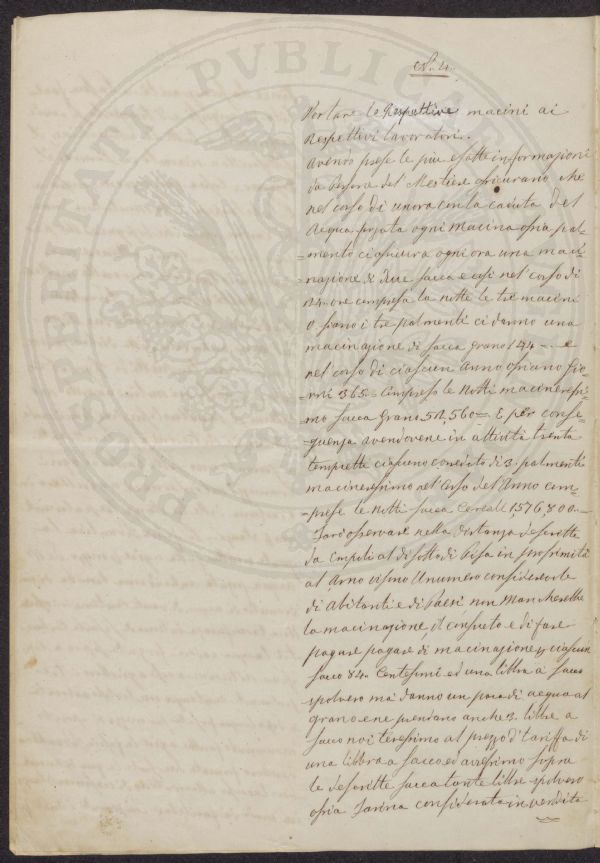 PROSPERITATI PVBLICAE
N. 4.
Portare le Respettive macini ai
Respettivi lavoratori.
avendo prese le piu esatte informazioni
da Persone del Mestiere assicurano che
nel corso di un ora con la caduta del
acqua ogni Macina ossia pal-
=mento ciascuna ogni ora una maci-
=nazione di due sacca e cosi nel corso di
24. ore compresa la notte le tre macini
O siano i tre palmenti ci danno una
macinazione di sacca grano 144 = e
nel corso di ciascun Anno ossiano Gio-
=rni 365 = Compreso le Notti macineressi-
mo sacca Grano 52,560 = E per conse-
=guenza avendovene in attività trenta
ciascuno di 3. palmenti
macineressimo nel Corso del Anno com-
=prese le Notti sacca Cereale 1,576,800. =
Farò osservare nella distanza descritta
da Empoli al disotto di Pisa in prossimità
al Arno vi sono Un numero considerevole
di Abitanti e di Paesi non Mancherebbe
la macinazione, il consueto e di fare
pagare pagare di macinazione p ciascun
sacco 84. Centesimi ed una libbra a sacco
spolvero ma danno un poco di acqua al
grano e ne prendano anche 3. libbre a
sacco noi teressimo al prezzo d' tariffa di
una libbra a sacco ed avressimo sopra
le descritte sacca tante libbre spolvero
ossia Farina considerata in vendita